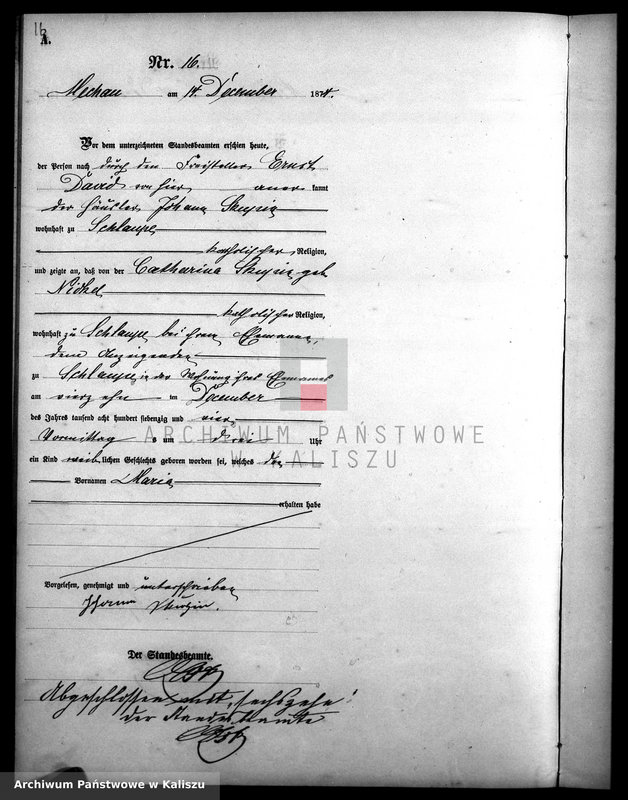 16
A.
Nr. 16.
Mechau am 14 December 1874.
Vor dem unterzeichneten Standesbeamten erschien heute,
der Person nach durch den Freisteller Ernst
David von hier aner kannt
der Häusler Johann Skupin
wohnhaft zu Schlaupe
katholischer Religion,
und zeigte an, daß von der Catharina Skupin geb
Nickel
katholischer Religion,
wohnhaft zu Schlaupe bei ihrem Ehemanne,
dem Anzeigenden
zu Schlaupe in der Wohnung ihres Ehemannes
am vierzehn ten December
des Jahres tausend acht hundert siebenzig und vier
Vormittag s um drei Uhr
ein Kind weib lichen Geschlechts geboren worden sei, welches den
Vornamen Maria
erhalten habe
Vorgelesen, genehmigt und unterschrieben
Johann Skupin.
Der Standesbeamte.
Abgeschlossen mit sechszehn
der Standesbeamte
ARCHIWUM PAŃSTWOWE
W KALISZU
Archiwum Państwowe w Kaliszu